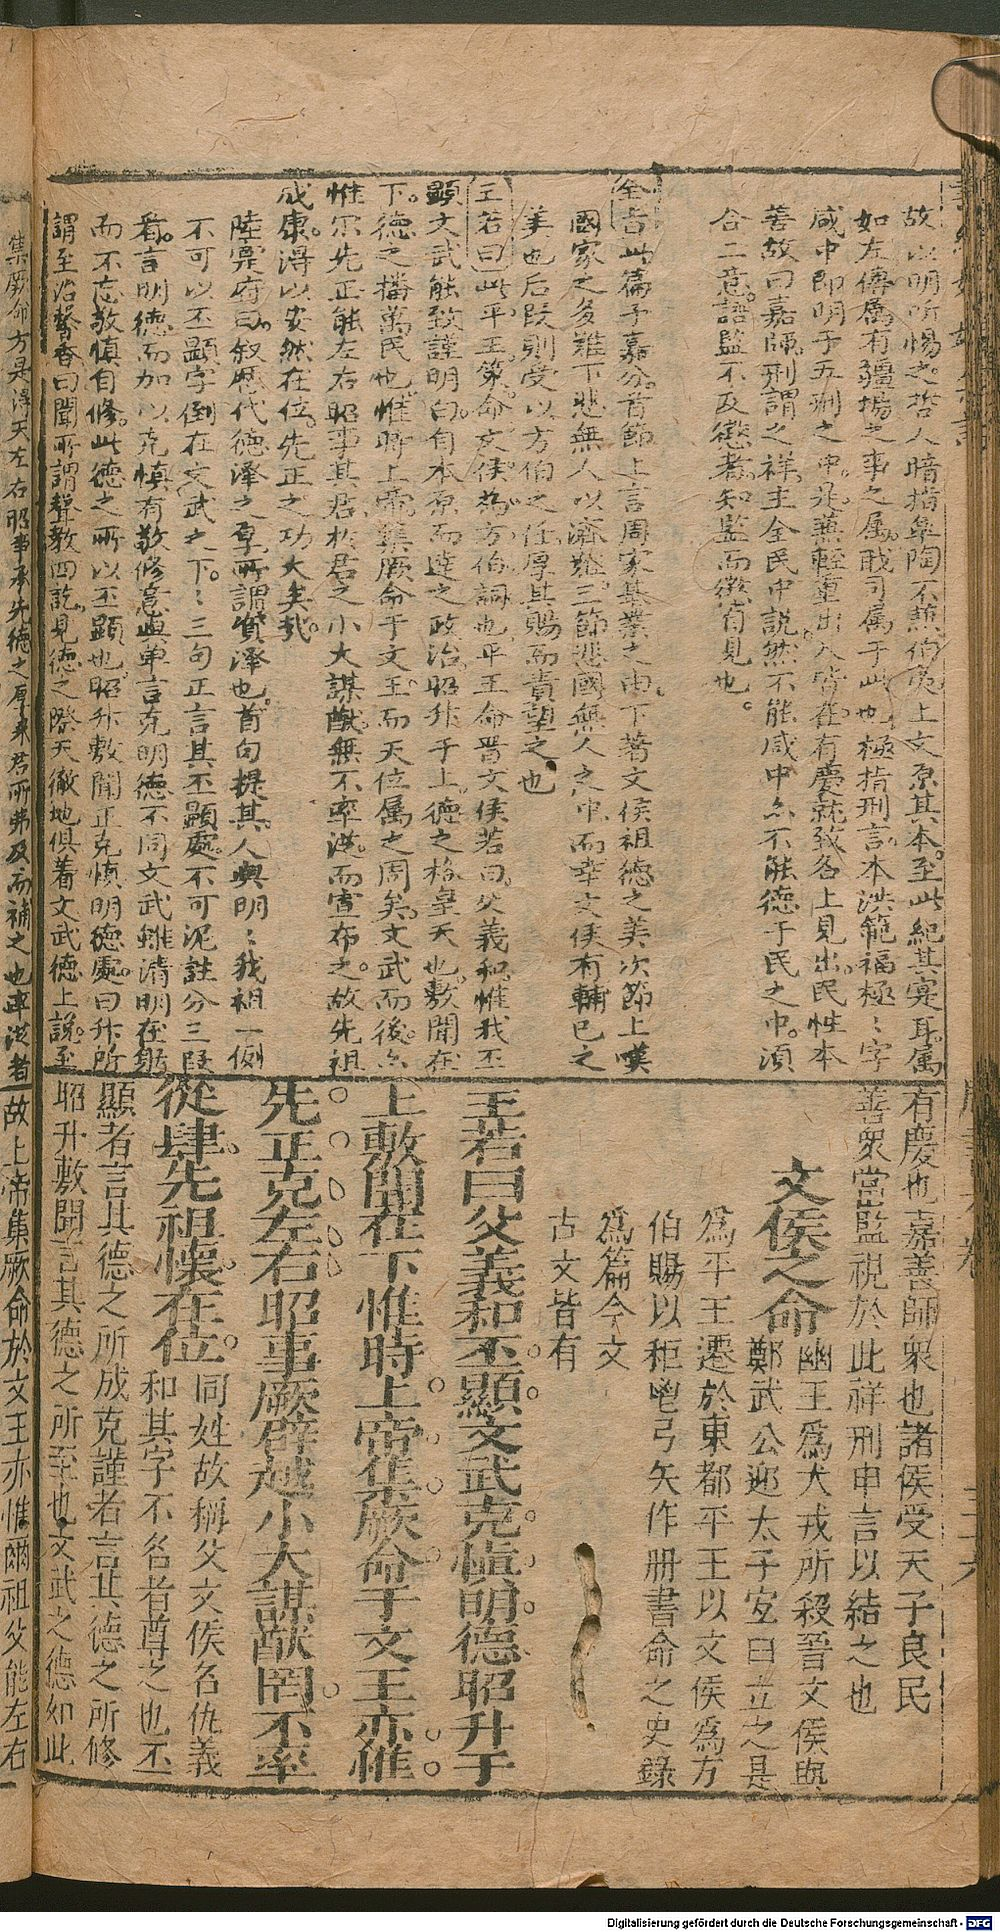 故以明所惕之哲人暗指皐陶不蕉伯夷上文原其本至此紀其實耳属
如左傳属有疆塲之事之属戢司属于此也極指刑言本洪範福極〻字
咸中即明于五刑之中是蕪輕重出入皆在有慶就致各上見出民性本
善故曰嘉師刑謂之祥主全民中説然不能咸中尓不能德于民之中湏
合二意語監不及懲者知監而懲有見也
全旨此篇予嘉分首節上言周家基業之由下著文侯祖德之美次節上嘆
國家之多難下悲無人以濟難三節悲國無人之中而幸文侯有輔已之
美也后叚則受以方伯之任厚其賜而責望之也
王若曰此平王策命文侯為方伯詞也平王命晋文侯若曰父義和惟我丕
顕文武能致謹明白自本原而達之政治昭升于上德之格皇天也敷聞在
下德之播萬民也惟時上帝集厥命于文王而天位属之周矣文武而後尓
惟尔先正能左右昭事其君於君之小大謀猷無不率従而宣布之故先祖
成康得以安然在位先正之功大矣我
陸稟府曰叙歴代德澤之厚所謂質澤也首句提其人與明〻我祖一例
不可以丕顕字倒在文武之下〻三句正言其丕顕處不可泥註分三叚
看言明德而加以克慎有敬修意與單言克明德不同文武雖清明在躬
而不忘敬慎自修此德之所以丕顕也昭升敷聞正克慎明德處曰升所
謂至治馨香曰聞所謂聲教四訖見德之際天徹地俱着文武德上説至
集厥命方是得天左右昭事承先德之厚來君所弗及而補之也率従者
有慶也嘉善師衆也諸侯受天子良民
善衆當監視於此祥刑申言以結之也
文侯之命 幽王為犬戎所殺晉文侯與
鄭武公迎太子宜臼立之是
為平王遷於東都平王以文侯為方
伯賜以秬鬯弓矢作册書命之史錄
為篇今文
古文皆有
王若曰父義和丕顯文武克慎明德昭升于
上敷聞在下惟時上帝集厥命于文王亦惟
先正克左右昭事厥辟越小大謀猷罔不率
從肆先祖懷在位 同姓故稱父文侯名仇義
和其字不名者尊之也丕
顯者言其德之所成克謹者言其德之所修
昭升敷聞言其德之所至也文武之德如此
故上帝集厥命於文王亦惟爾祖父能左右
Digitalisierung gefördert durch die Deutsche Forschungsgemeinschaft - DFG